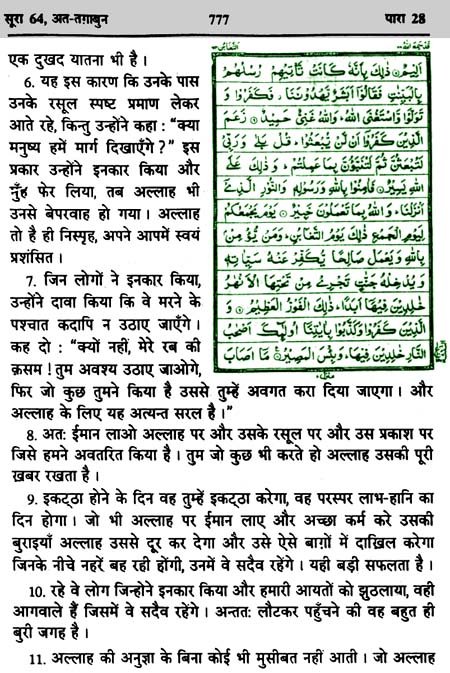 सूरा 64, अत-तग़ाबुन 777 पारा 28
एक दुखद यातना भी है ।
6. यह इस कारण कि उनके पास
उनके रसूल स्पष्ट प्रमाण लेकर
आते रहे, किन्तु उन्होंने कहा : “क्या
मनुष्य हमें मार्ग दिखाएँगे ?” इस
प्रकार उन्होंने इनकार किया और
मुँह फेर लिया, तब अल्लाह भी
उनसे बेपरवाह हो गया । अल्लाह
तो है ही निस्पृह, अपने आपमें स्वयं
प्रशंसित ।
7. जिन लोगों ने इनकार किया,
उन्होंने दावा किया कि वे मरने के
पश्चात कदापि न उठाए जाएँगे ।
कह दो : “क्यों नहीं, मेरे रब की
क़सम ! तुम अवश्य उठाए जाओगे,
اَلِيْمٌ ۞ ذٰلِكَ بِاَنَّهٗ كَانَتْ تَّاْتِيْهِمْ رُسُلُهُمْ
بِالْبَيِّنٰتِ فَقَالُوْۤا اَبَشَرٌ يَّهْدُوْنَنَا ۡ فَكَفَرُوْا وَ
تَوَلَّوْا وَّاسْتَغْنَى اللّٰهُ ؕ وَاللّٰهُ غَنِيٌّ حَمِيْدٌ ۞ زَعَمَ
الَّذِيْنَ كَفَرُوْۤا اَنْ لَّنْ يُّبْعَثُوْا ؕ قُلْ بَلٰى وَرَبِّيْ
لَتُبْعَثُنَّ ثُمَّ لَتُنَبَّؤُنَّ بِمَا عَمِلْتُمْ ؕ وَ ذٰلِكَ عَلَى
اللّٰهِ يَسِيْرٌ ۞ فَاٰمِنُوْا بِاللّٰهِ وَرَسُوْلِهٖ وَالنُّوْرِ الَّذِيْۤ
اَنْزَلْنَا ؕ وَاللّٰهُ بِمَا تَعْمَلُوْنَ خَبِيْرٌ ۞ يَوْمَ يَجْمَعُكُمْ
لِيَوْمِ الْجَمْعِ ذٰلِكَ يَوْمُ التَّغَابُنِ ؕ وَمَنْ يُّؤْمِنْۢ
بِاللّٰهِ وَيَعْمَلْ صَالِحًا يُّكَفِّرْ عَنْهُ سَيِّاٰتِهٖ
وَ يُدْخِلْهُ جَنّٰتٍ تَجْرِيْ مِنْ تَحْتِهَا الْاَنْهٰرُ
خٰلِدِيْنَ فِيْهَاۤ اَبَدًا ؕ ذٰلِكَ الْفَوْزُ الْعَظِيْمُ ۞ وَ
الَّذِيْنَ كَفَرُوْا وَكَذَّبُوْا بِاٰيٰتِنَاۤ اُولٰٓئِكَ اَصْحٰبُ
النَّارِ خٰلِدِيْنَ فِيْهَا ؕ وَبِئْسَ الْمَصِيْرُ ۞ مَاۤ اَصَابَ
फिर जो कुछ तुमने किया है उससे तुम्हें अवगत करा दिया जाएगा । और
अल्लाह के लिए यह अत्यन्त सरल है ।”
8. अतः ईमान लाओ अल्लाह पर और उसके रसूल पर और उस प्रकाश पर
जिसे हमने अवतरित किया है । तुम जो कुछ भी करते हो अल्लाह उसकी पूरी
ख़बर रखता है ।
9. इकट्ठा होने के दिन वह तुम्हें इकट्ठा करेगा, वह परस्पर लाभ-हानि का
दिन होगा । जो भी अल्लाह पर ईमान लाए और अच्छा कर्म करे उसकी
बुराइयाँ अल्लाह उससे दूर कर देगा और उसे ऐसे बाग़ों में दाख़िल करेगा
जिनके नीचे नहरें बह रही होंगी, उनमें वे सदैव रहेंगे । यही बड़ी सफलता है ।
10. रहे वे लोग जिन्होंने इनकार किया और हमारी आयतों को झुठलाया, वही
आगवाले हैं जिसमें वे सदैव रहेंगे । अन्ततः लौटकर पहुँचने की वह बहुत ही
बुरी जगह है ।
11. अल्लाह की अनुज्ञा के बिना कोई भी मुसीबत नहीं आती । जो अल्लाह